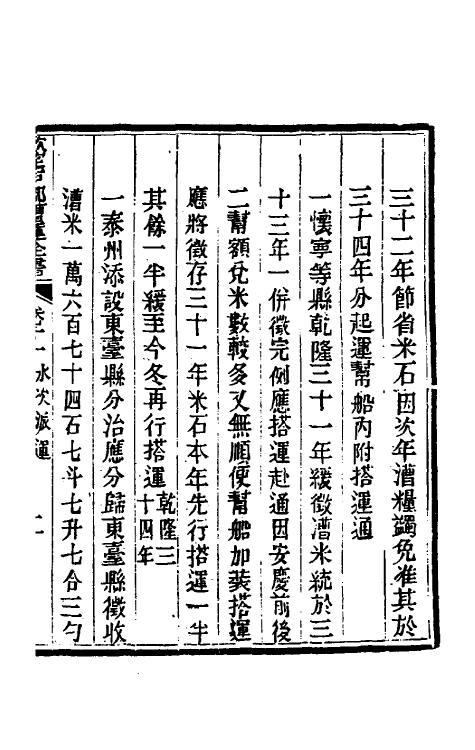 三十二年節省米石因次年漕糧蠲免准其於
三十四年分起運幫船內附搭運通
一懷寧等縣乾隆三十一年緩徵漕米統於三
十三年一併徵完例應搭運赴通因安慶前後
二幫額兌米數較多又無順便幫船加裝搭運
應將徵存三十一年米石本年先行搭運一半
其餘一半緩至今冬再行搭運乾隆三十四年
一泰州添設東臺縣分治應分歸東臺縣徵收
漕米一萬六百七十四石七斗七升七合三勺
漕運全書
水次派運